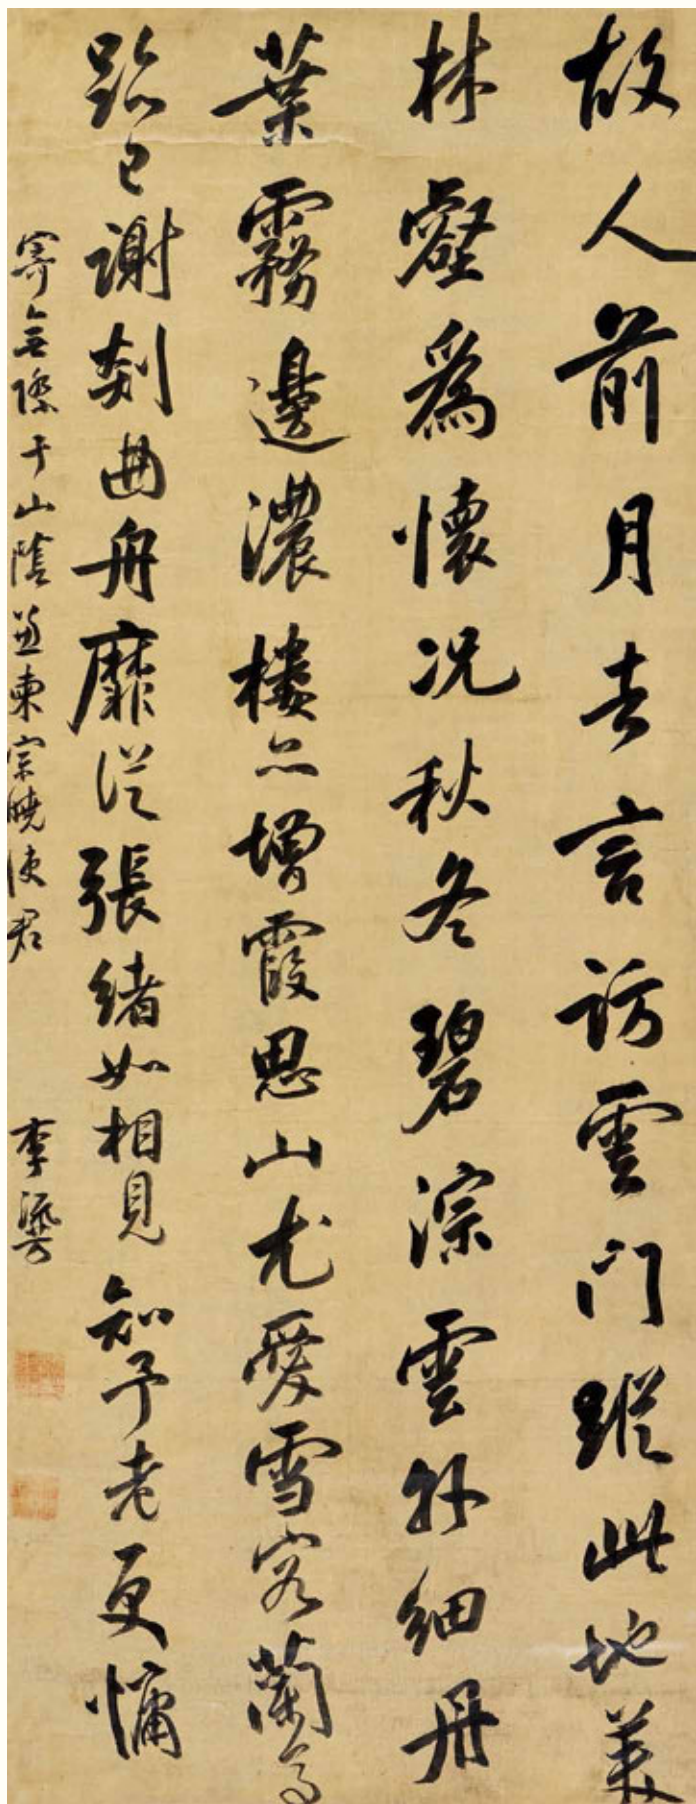 故人前月去言訪雲門蹤此地美
林壑爲懷況秋冬碧淙雲外細丹
葉霧邊濃樓亦增霞思山尤愛雪容蘭亭
跡已謝剡曲舟靡從張緒如相見知予老更慵
寄無際于山陰並柬宗曉使君
李